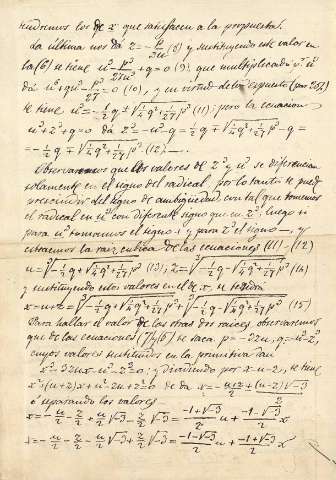 tendremos los de x que satisfacen a la propuesta.
La última nos dá z = -p/3u (8) y sustituyendo este valor en
la (6) se tiene u³ - p³/27u³ + q = 0 (9); que multiplicada pr u³
dá u⁶ + qu³ - p³/27 = 0 (10), y en virtud de lo espuesto (par 252)
se tiene u³ = -½q ± √(¼q² + 1/27 p³) (11); pero la ecuacion
u³ + z³ + q = 0 dá z³ = -u³ - q = ½q ∓ √(¼q² + 1/27 p³) - q =
= -½q ∓ √(¼q² + 1/27 p³) (12)
Observaremos que los valores de z³ y u³ se diferencian
solamente en el signo del radical, por lo tanto se puede
prescindir del signo de ambigüedad, con tal que tomemos
el radical en u³ con diferente signo que en z³; luego si
para u³ tomamos el signo + y para z³ el signo -, y
estraemos la raiz cubica de las ecuaciones (11) - (12)
u = ∛(-½q + √(¼q² + 1/27 p³)) (13); z = ∛(-½q - √(¼q² + 1/27 p³)) (14)
y sustituyendo estos valores en el de x, se tendrá
x = u + z = ∛(-½q + √(¼q² + 1/27 p³)) + ∛(-½q - √(¼q² + 1/27 p³)) (15)
Para hallar el valor de las otras dos raices, observaremos
que de las ecuaciones (7) y (6) se saca p = -3zu, q = -u³ - z³
cuyos valores sustituidos en la primitiva dan
x³ - 3zux - u³ - z³ = 0; y dividiendo por x - u - z, se tiene
x² + (u+z)x + u² - uz + z² = 0 de dá x = -(u+z)/2 ± (u-z)√-3/2
ó separando los valores
x = -u/2 - z/2 + u/2 √-3 - z/2 √-3 = (-1+√-3)/2 u + (-1-√-3)/2 z
x = -u/2 - z/2 - u/2 √-3 + z/2 √-3 = (-1-√-3)/2 u + (-1+√-3)/2 z